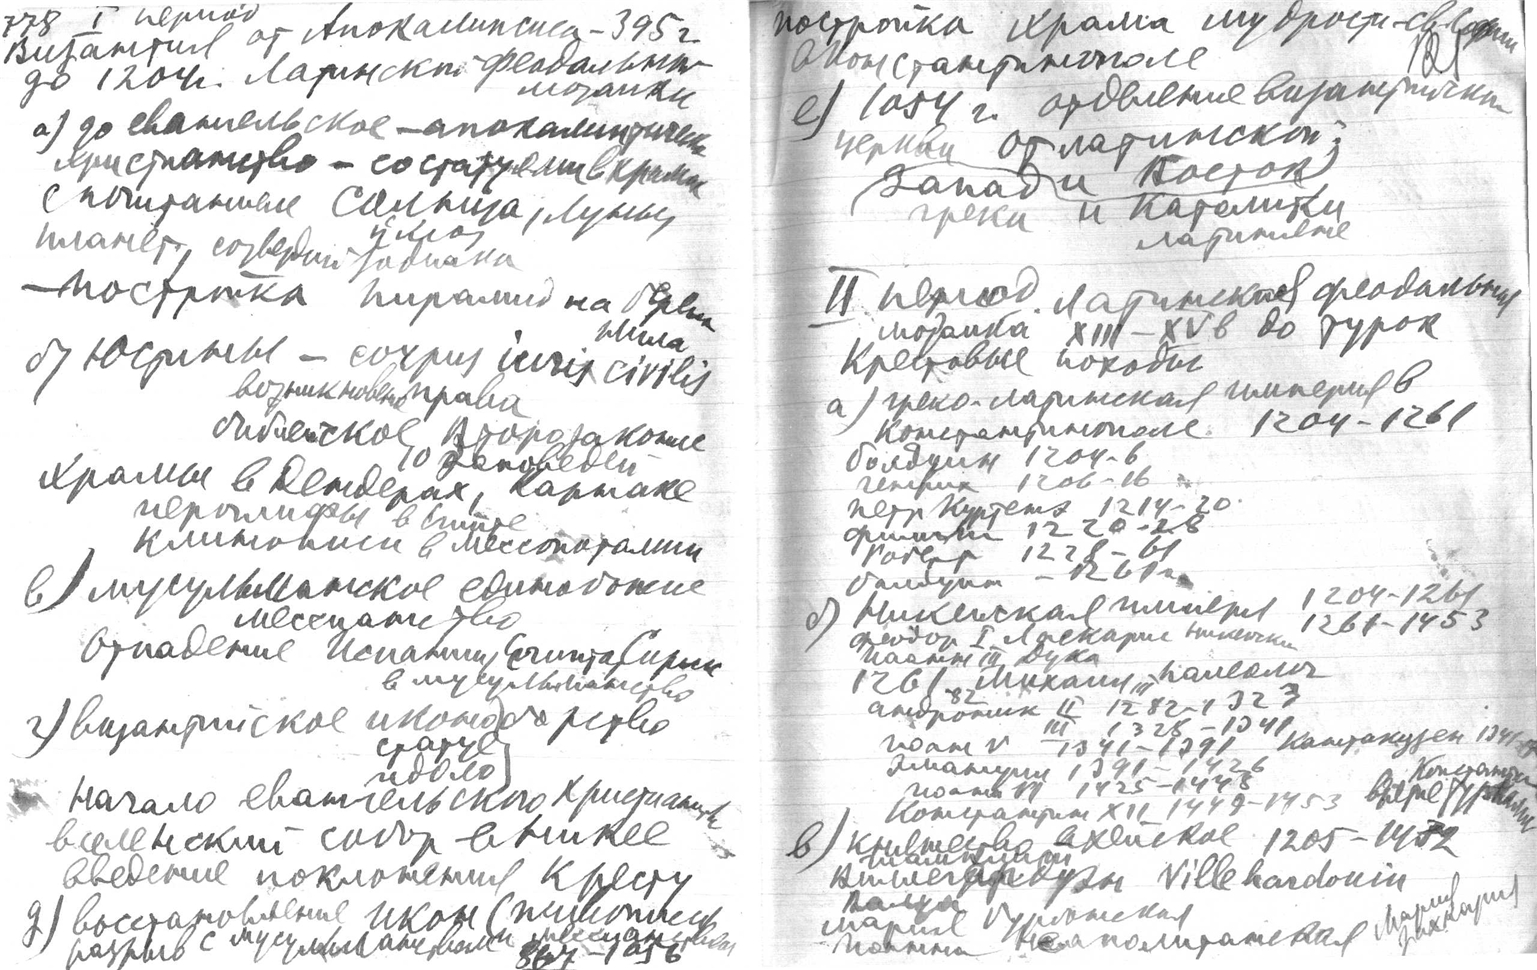 778 I период
Византия от Апокалипсиса – 395 г.
до 1204 г. Латинско феодальная
мозаики
а) до евангельское – апокалиптическ
христианство – со статуями в храмах
с почитанием Солнца, Луны
планет, созвездий Зодиака
– постройка пирамид на берегах
Нила
б) Юстиниан – corpus iuris civilis
возникновение права
библейское Второзаконие
10 заповедей
Храмы в Дендерах, Карнаке
иероглифы в Египте
клинописи в Мессопотамии
в) мусульманское единобожие
мессианство
Отпадение Испании, Египта, Сирии
в мусульманство
г) византийское иконоборство
статуе
идоло
Начало евангельского христианств
вселенский собор в Никее
введение поклонения Кресту
д) восстановление икон (живопись
разрыв с мусульманством
867 – 1056
постройка храма мудрости – св. Софии
в Константинополе
121
е) 1054 г. отделение византийской
церкви от латинской;
Запад и Восток
греки и католики
латиняне
II период. Латинская феодальная
мозаика XIII – XV в до турок
Крестовые походы
а) греко-латинская империя в
Константинополе 1204 – 1261
болдуин 1204-6
генрих 1206-16
петр Куртене 1214-20
филипп 1220-28
роберт 1228-61
болдуин – 1261 г.
б) Никейская империя 1204-1261
1261-1453
феодор I Ласкарис никейский
Иоанн III Дука
1261 Михаил палеолог
82
андроник II 1282-1323
III 1328-1341
Иоанн V – 1341-1391 Кантакузен 1341
Эмануил 1391-1426
Иоанн VII 1425-1448
Константин XII 1449-1453 Константин
взятие турками
в) княжество ахейское 1205-1432
Вилле Villehardouin
мария бурбонская
Иоанна неаполитанская
Мария
Захария